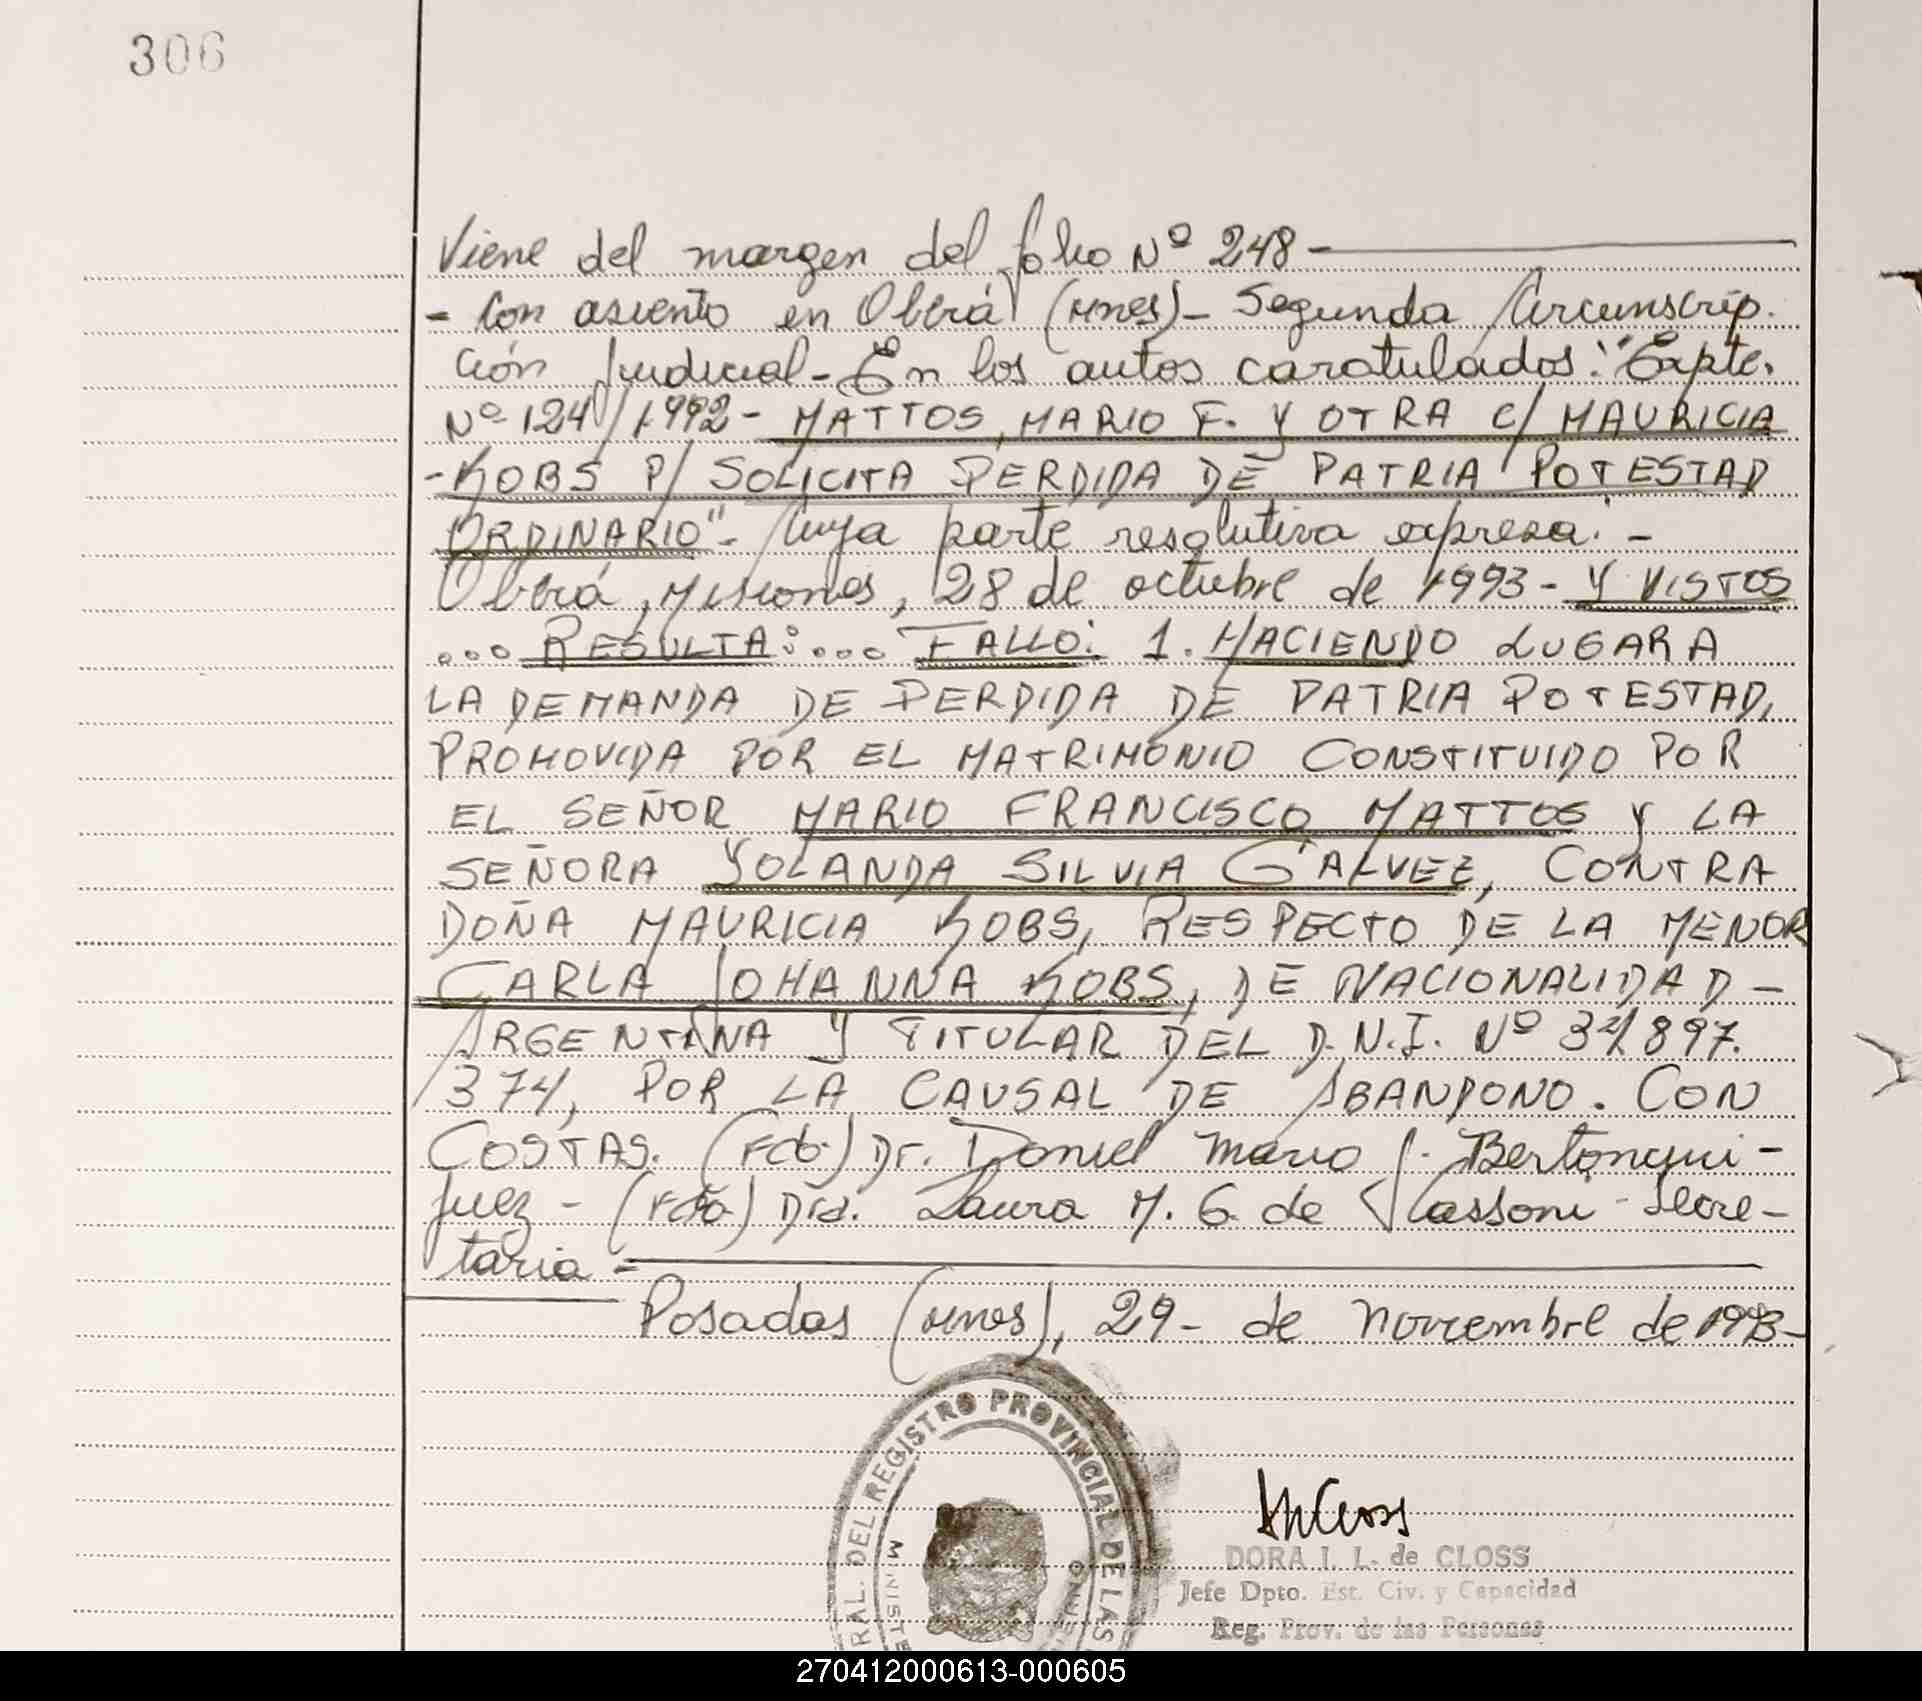 306
Viene del margen del folio Nº 248 -
- Con asiento en Oberá (Mnes) - Segunda Circunscrip.
ción Judicial - En los autos caratulados: "Expte.
Nº 124/1992 - MATTOS, MARIO F. Y OTRA C/ MAURICIA
- KOBS P/ SOLICITA PERDIDA DE PATRIA POTESTAD
ORDINARIO" - Cuya parte resolutiva expresa: -
Oberá, Misiones, 28 de octubre de 1993 - Y VISTOS
... RESULTA: ... FALLO: 1. HACIENDO LUGAR A
LA DEMANDA DE PERDIDA DE PATRIA POTESTAD,
PROMOVIDA POR EL MATRIMONIO CONSTITUIDO POR
EL SEÑOR MARIO FRANCISCO MATTOS Y LA
SEÑORA YOLANDA SILVIA GALVEZ, CONTRA
DOÑA MAURICIA KOBS, RESPECTO DE LA MENOR
CARLA JOHANNA KOBS, DE NACIONALIDAD -
ARGENTINA Y TITULAR DEL D.N.I. Nº 897.
374, POR LA CAUSAL DE ABANDONO. CON
COSTAS. (Fdo.) Dr. Daniel Mario J. -
Juez - (Fdo) Dra. Laura M. G. de Secre-
taria =
Posadas (Mnes), 29 - de Noviembre de 1993 -
RAL. DEL REGISTRO PROVINCIAL DE LAS
MINISTE
DORA I. L. de CLOSS
Jefe Dpto. Est. Civ. y Capacidad
Reg. Prov. de las Personas
270412000613-000605